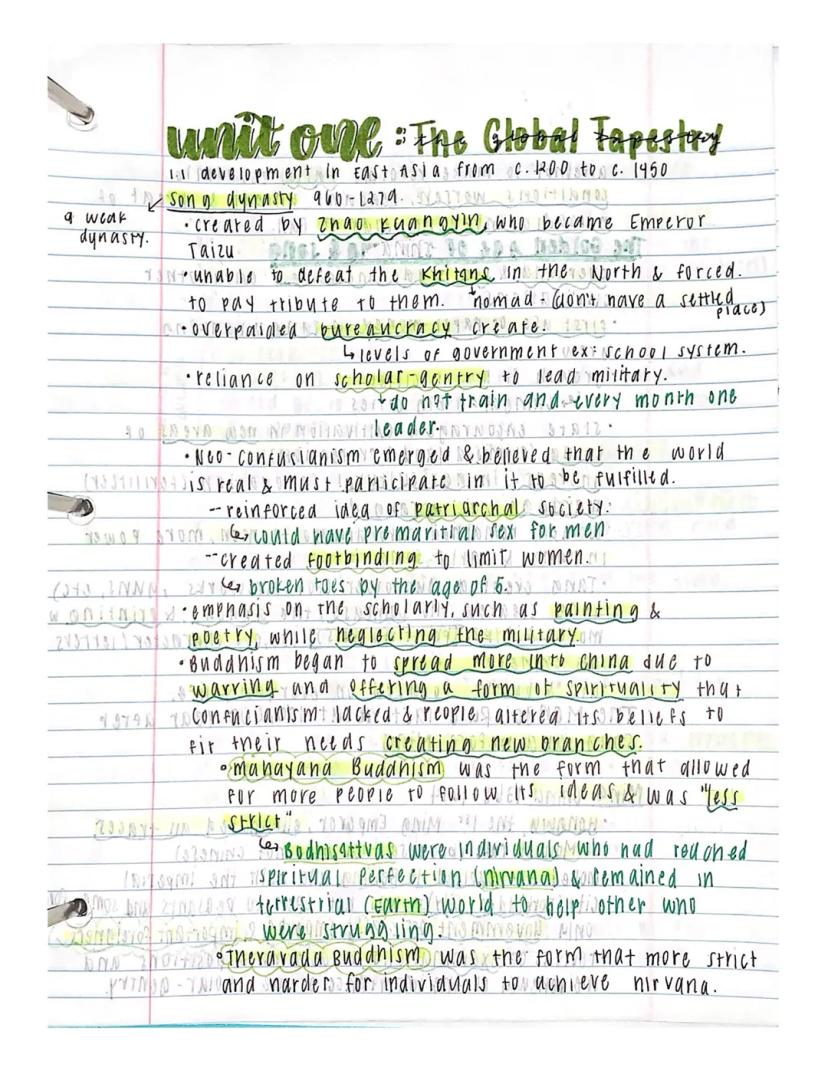 unit one : The Global Tapestry
1.1 development in East Asia from c. 1200 to c. 1450
Song dynasty 960-1279.
a weak
dynasty.
• created by Zhao Kuangyin, who became Emperor
Taizu
• unable to defeat the Khitans in the North & forced.
to pay tribute to them. nomad - (don't have a settled
place)
• overpaided bureaucracy create.
levels of government ex: school system.
• reliance on scholar-gentry to lead military.
do not train and every month one
leader.
• Neo-Confusianism emerged & believed that the world
is real & must participate in it to be fulfilled.
- reinforced idea of patriarchal society.
could have premaritial sex for men
- created footbinding to limit women.
broken toes by the age of 5.
• emphasis on the scholarly, such as painting &
poetry, while neglecting the military.
• Buddhism began to spread more into china due to
warring and offering a form of spirituality that
Confucianism lacked & people altered its beliefs to
fit their needs creating new branches.
• mahayana Buddhism was the form that allowed
for more people to follow its ideas & was "less
strict"
Bodhisattvas were individuals who had reached
spiritual perfection (nirvana) & remained in
terrestrial (Earth) world to help other who
were struggling.
• Theravada Buddhism was the form that more strict
and harder for individuals to achieve nirvana.